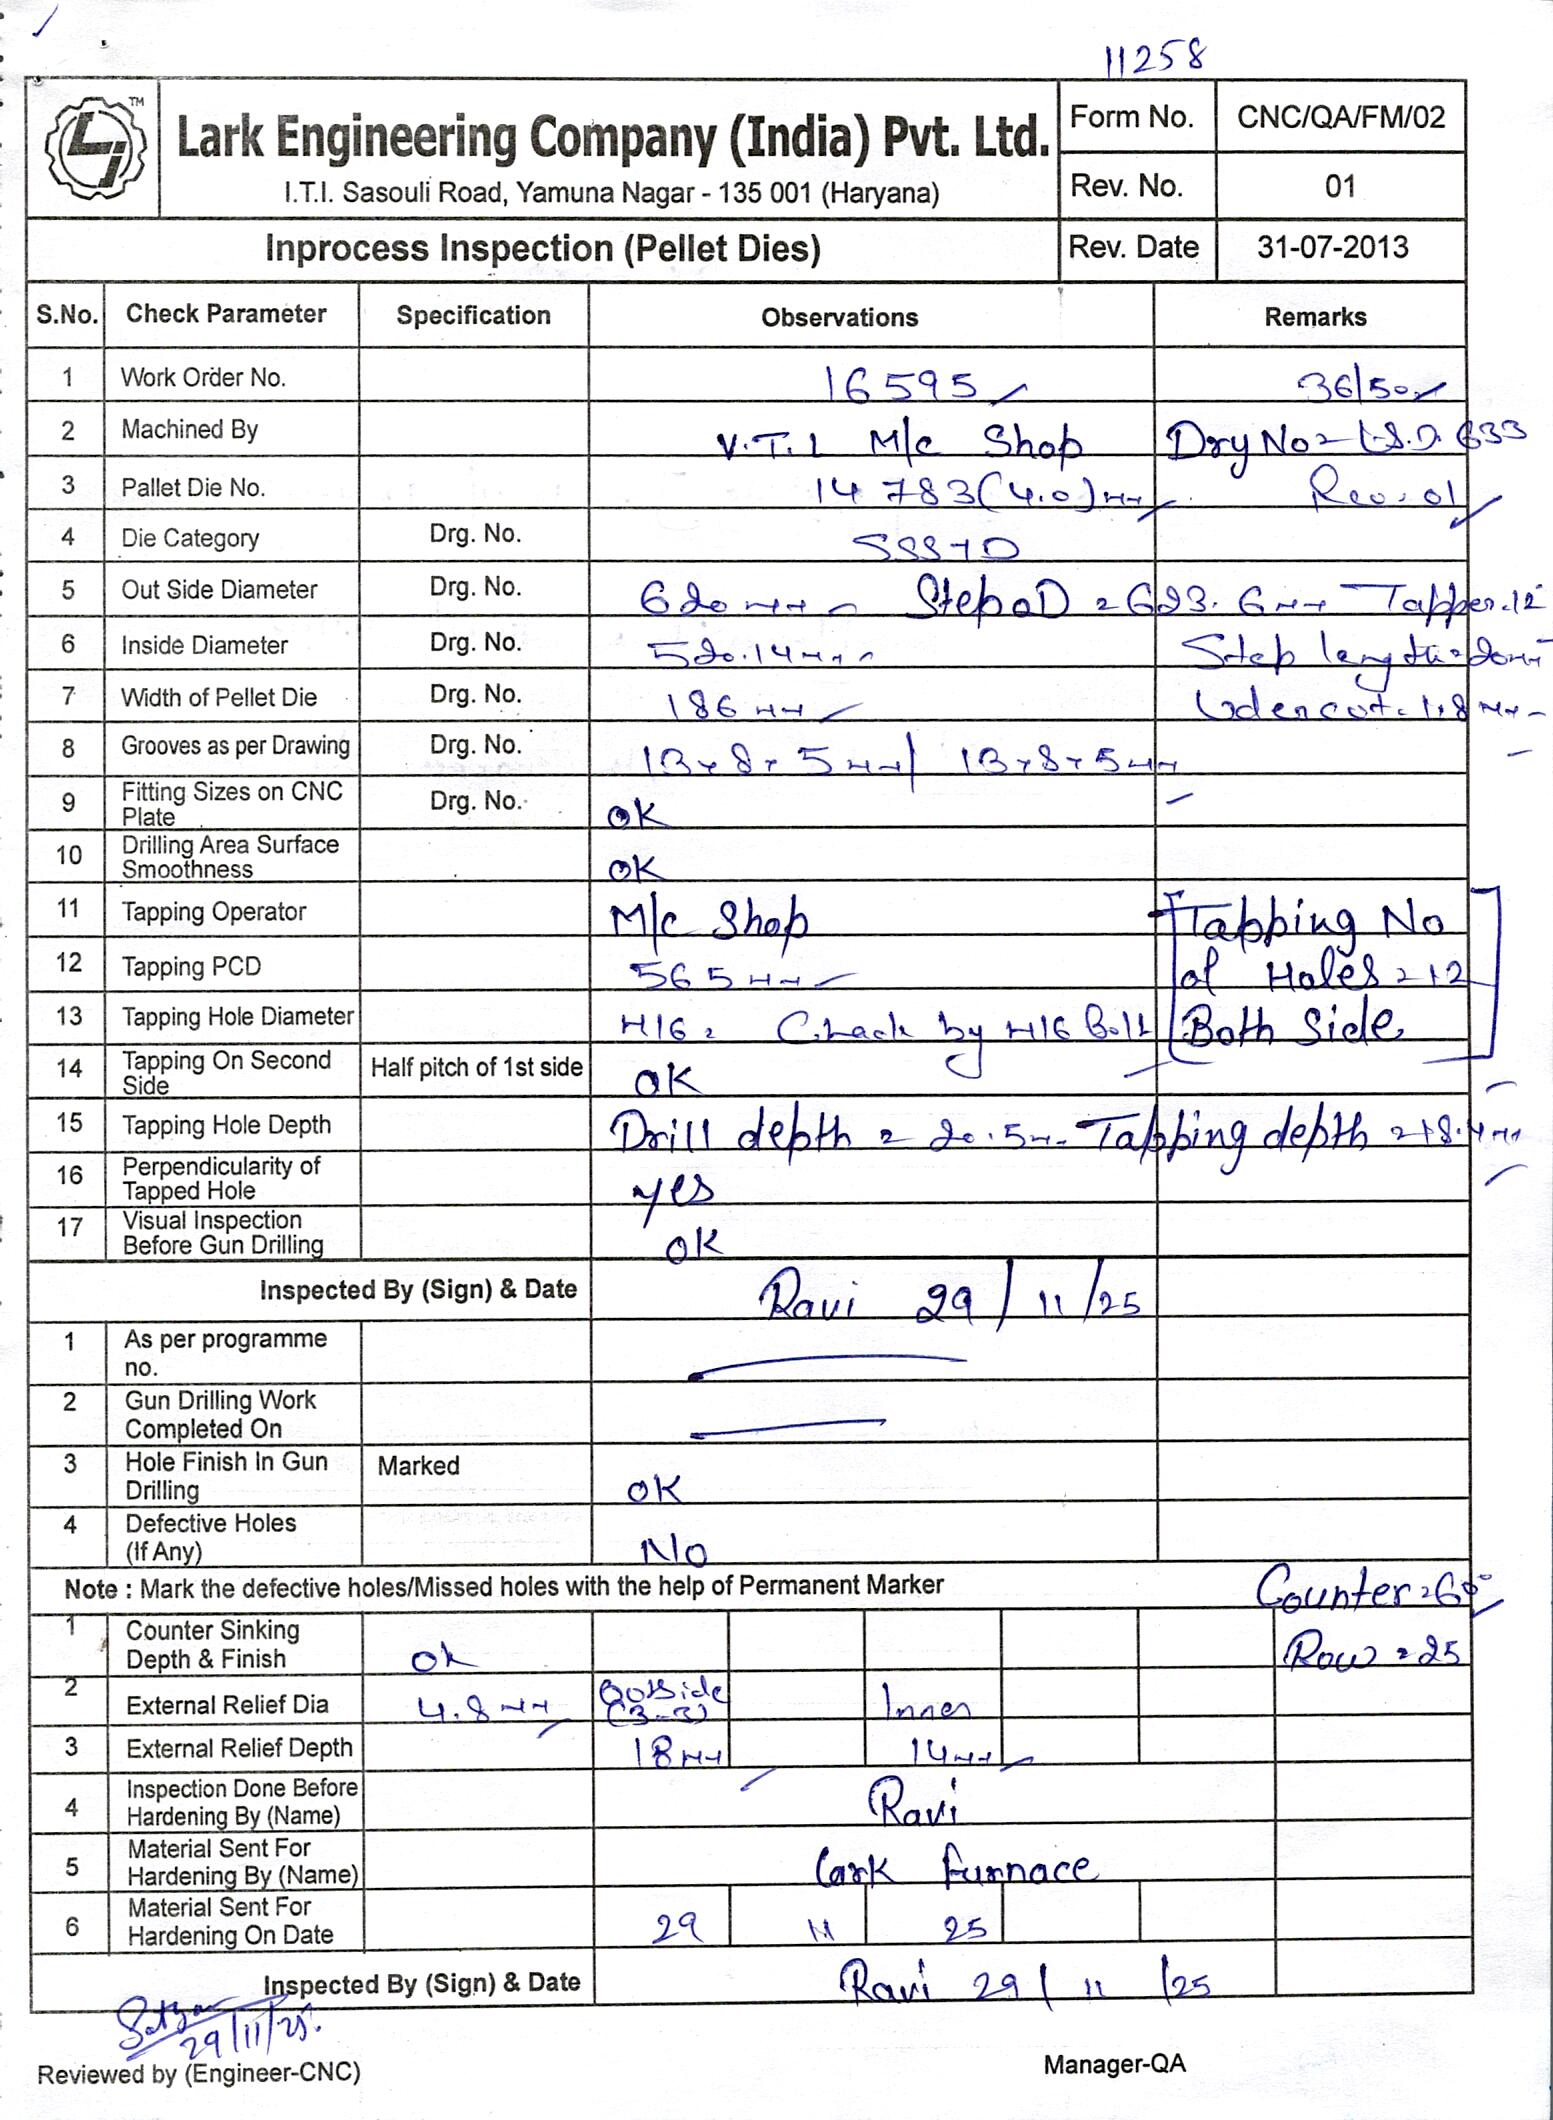 11258
TM
Lark Engineering Company (India) Pvt. Ltd.
I.T.I. Sasouli Road, Yamuna Nagar - 135 001 (Haryana)
Form No. CNC/QA/FM/02
Rev. No. 01
Inprocess Inspection (Pellet Dies) Rev. Date 31-07-2013
S.No. Check Parameter Specification Observations Remarks
1 Work Order No. 16595 36/50
2 Machined By V.T.L M/c Shop Drg No = L.S.D. 633
3 Pallet Die No. 14783 (4.0) mm Rev. 01
4 Die Category Drg. No.
5 Out Side Diameter Drg. No. 620 mm Step OD = 623.6 mm Tapper. 12°
6 Inside Diameter Drg. No. 520.14 mm Step length = 20 mm
7 Width of Pellet Die Drg. No. 186 mm Undercut = 1.8 mm
8 Grooves as per Drawing Drg. No. 13 x 8 x 5 mm / 13 x 8 x 5 mm
9 Fitting Sizes on CNC Plate Drg. No. OK
10 Drilling Area Surface Smoothness OK
11 Tapping Operator M/c Shop Tapping No
12 Tapping PCD 565 mm of Holes = 12
13 Tapping Hole Diameter M16 = Check by M16 Bolt Both Side
14 Tapping On Second Side Half pitch of 1st side OK
15 Tapping Hole Depth Drill depth = 20.5 mm Tapping depth = 18.4 mm
16 Perpendicularity of Tapped Hole yes
17 Visual Inspection Before Gun Drilling OK
Inspected By (Sign) & Date Ravi 29/11/25
1 As per programme no.
2 Gun Drilling Work Completed On
3 Hole Finish In Gun Drilling Marked OK
4 Defective Holes (If Any) No
Note : Mark the defective holes/Missed holes with the help of Permanent Marker Counter = 60°
1 Counter Sinking Depth & Finish ok Row = 25
2 External Relief Dia 4.8 mm Outside (3-3) Inner
3 External Relief Depth 18 mm 14 mm
4 Inspection Done Before Hardening By (Name) Ravi
5 Material Sent For Hardening By (Name) Lark furnace
6 Material Sent For Hardening On Date 29 11 25
Inspected By (Sign) & Date Ravi 29/11/25
29/11/25.
Reviewed by (Engineer-CNC) Manager-QA